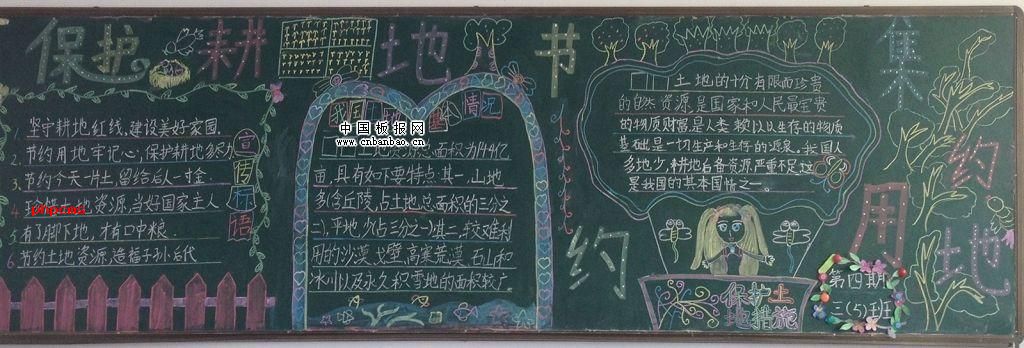 保护耕地 节约集约用地
1. 坚守耕地红线,建设美好家园.
2. 节约用地牢记心,保护耕地多尽力
3. 节约今天一片土,留给后人一寸金
4. 土地资源,当好国家主人
5. 有了脚下地,才有口中粮.
6. 节约土地资源,造福子孙后代
宣传标语
我国土 基本情况
中国板报网
www.cnbanbao.cn
土地资源总面积为144亿
亩,具有如下要特点:其一,山地
多(含丘陵,占土地总面积的三分之
二),平地少(占三分之一)其二,较难利
用的沙漠.戈壁,高寒荒漠.石山和
冰川以及永久积雪地的面积较广。
土地的十分有限而珍贵
的自然资源,是国家和人民最宝贵
的物质财富是人类赖以以生存的物质
基础是一切生产和生存的源泉.我国人
多地少,耕地后备资源严重不足,这
是我国的基本国情之一。
保护土
地措施
第四期
三(5)班